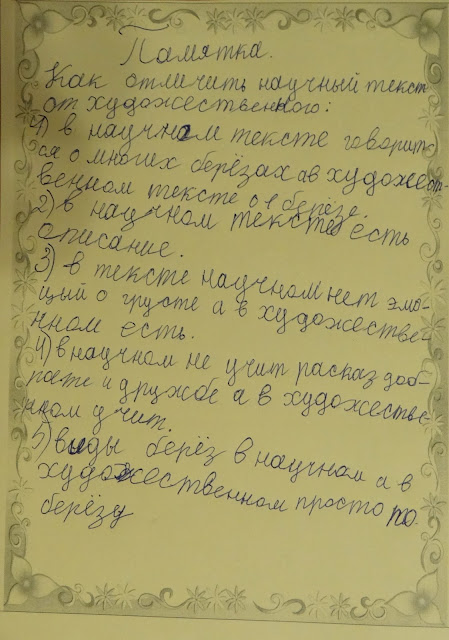 Памятка.
Как отличить научный текст
от художественного:
1) в научном тексте говорит-
ся о многих берёзах а в художест-
венном тексте о 1 берёзе.
2) в научном тексте есть
описание.
3) в тексте научном нет эмо-
цый о грусте а в художестве-
нном есть.
4) в научном не учит расказ доб-
роте и дружбе а в художестве
нном учит.
5) виды берёз в научном а в
художественном просто про
берёзу